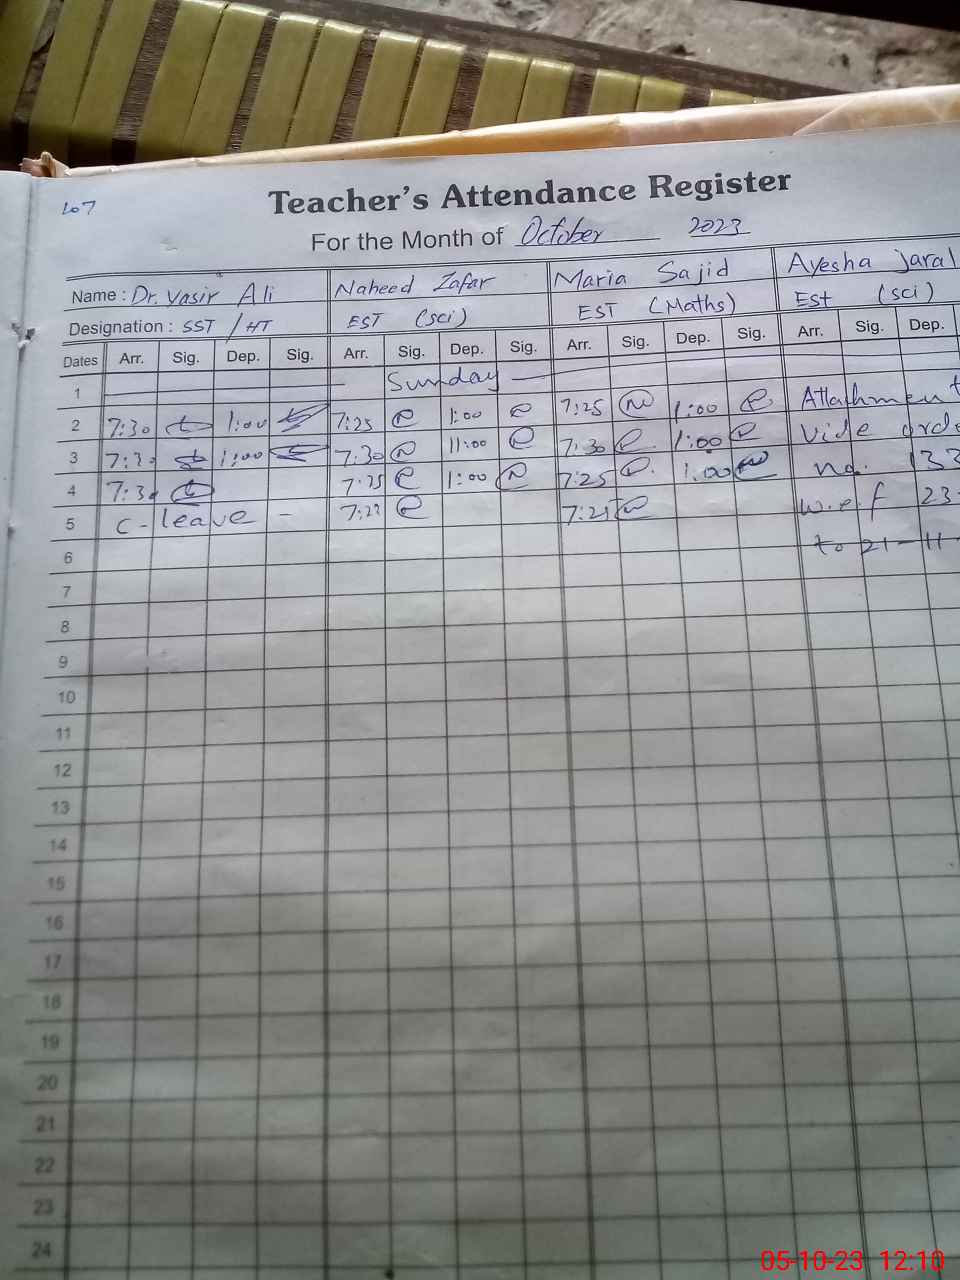 107
Teacher's Attendance Register
For the Month of October 2023
Name : Dr. Yasir Ali Naheed Zafar Maria Sajid Ayesha Jaral
Designation : SST / HT EST (sci) EST (Maths) Est (sci)
Dates Arr. Sig. Dep. Sig. Arr. Sig. Dep. Sig. Arr. Sig. Dep. Sig. Arr. Sig. Dep.
1 Sunday
2 7:30 1:00 7:25 1:00 7:25 1:00 Attachment
3 7:30 1:00 7:30 11:00 7:30 1:00 vide orde
4 7:30 7:25 1:00 7:25 1:00 no. 133
5 C-leave - 7:27 7:25 w.e.f 23-
6 to 21-11-
7
8
9
10
11
12
13
14
15
16
17
18
19
20
21
22
23
24
05-10-23 12:10